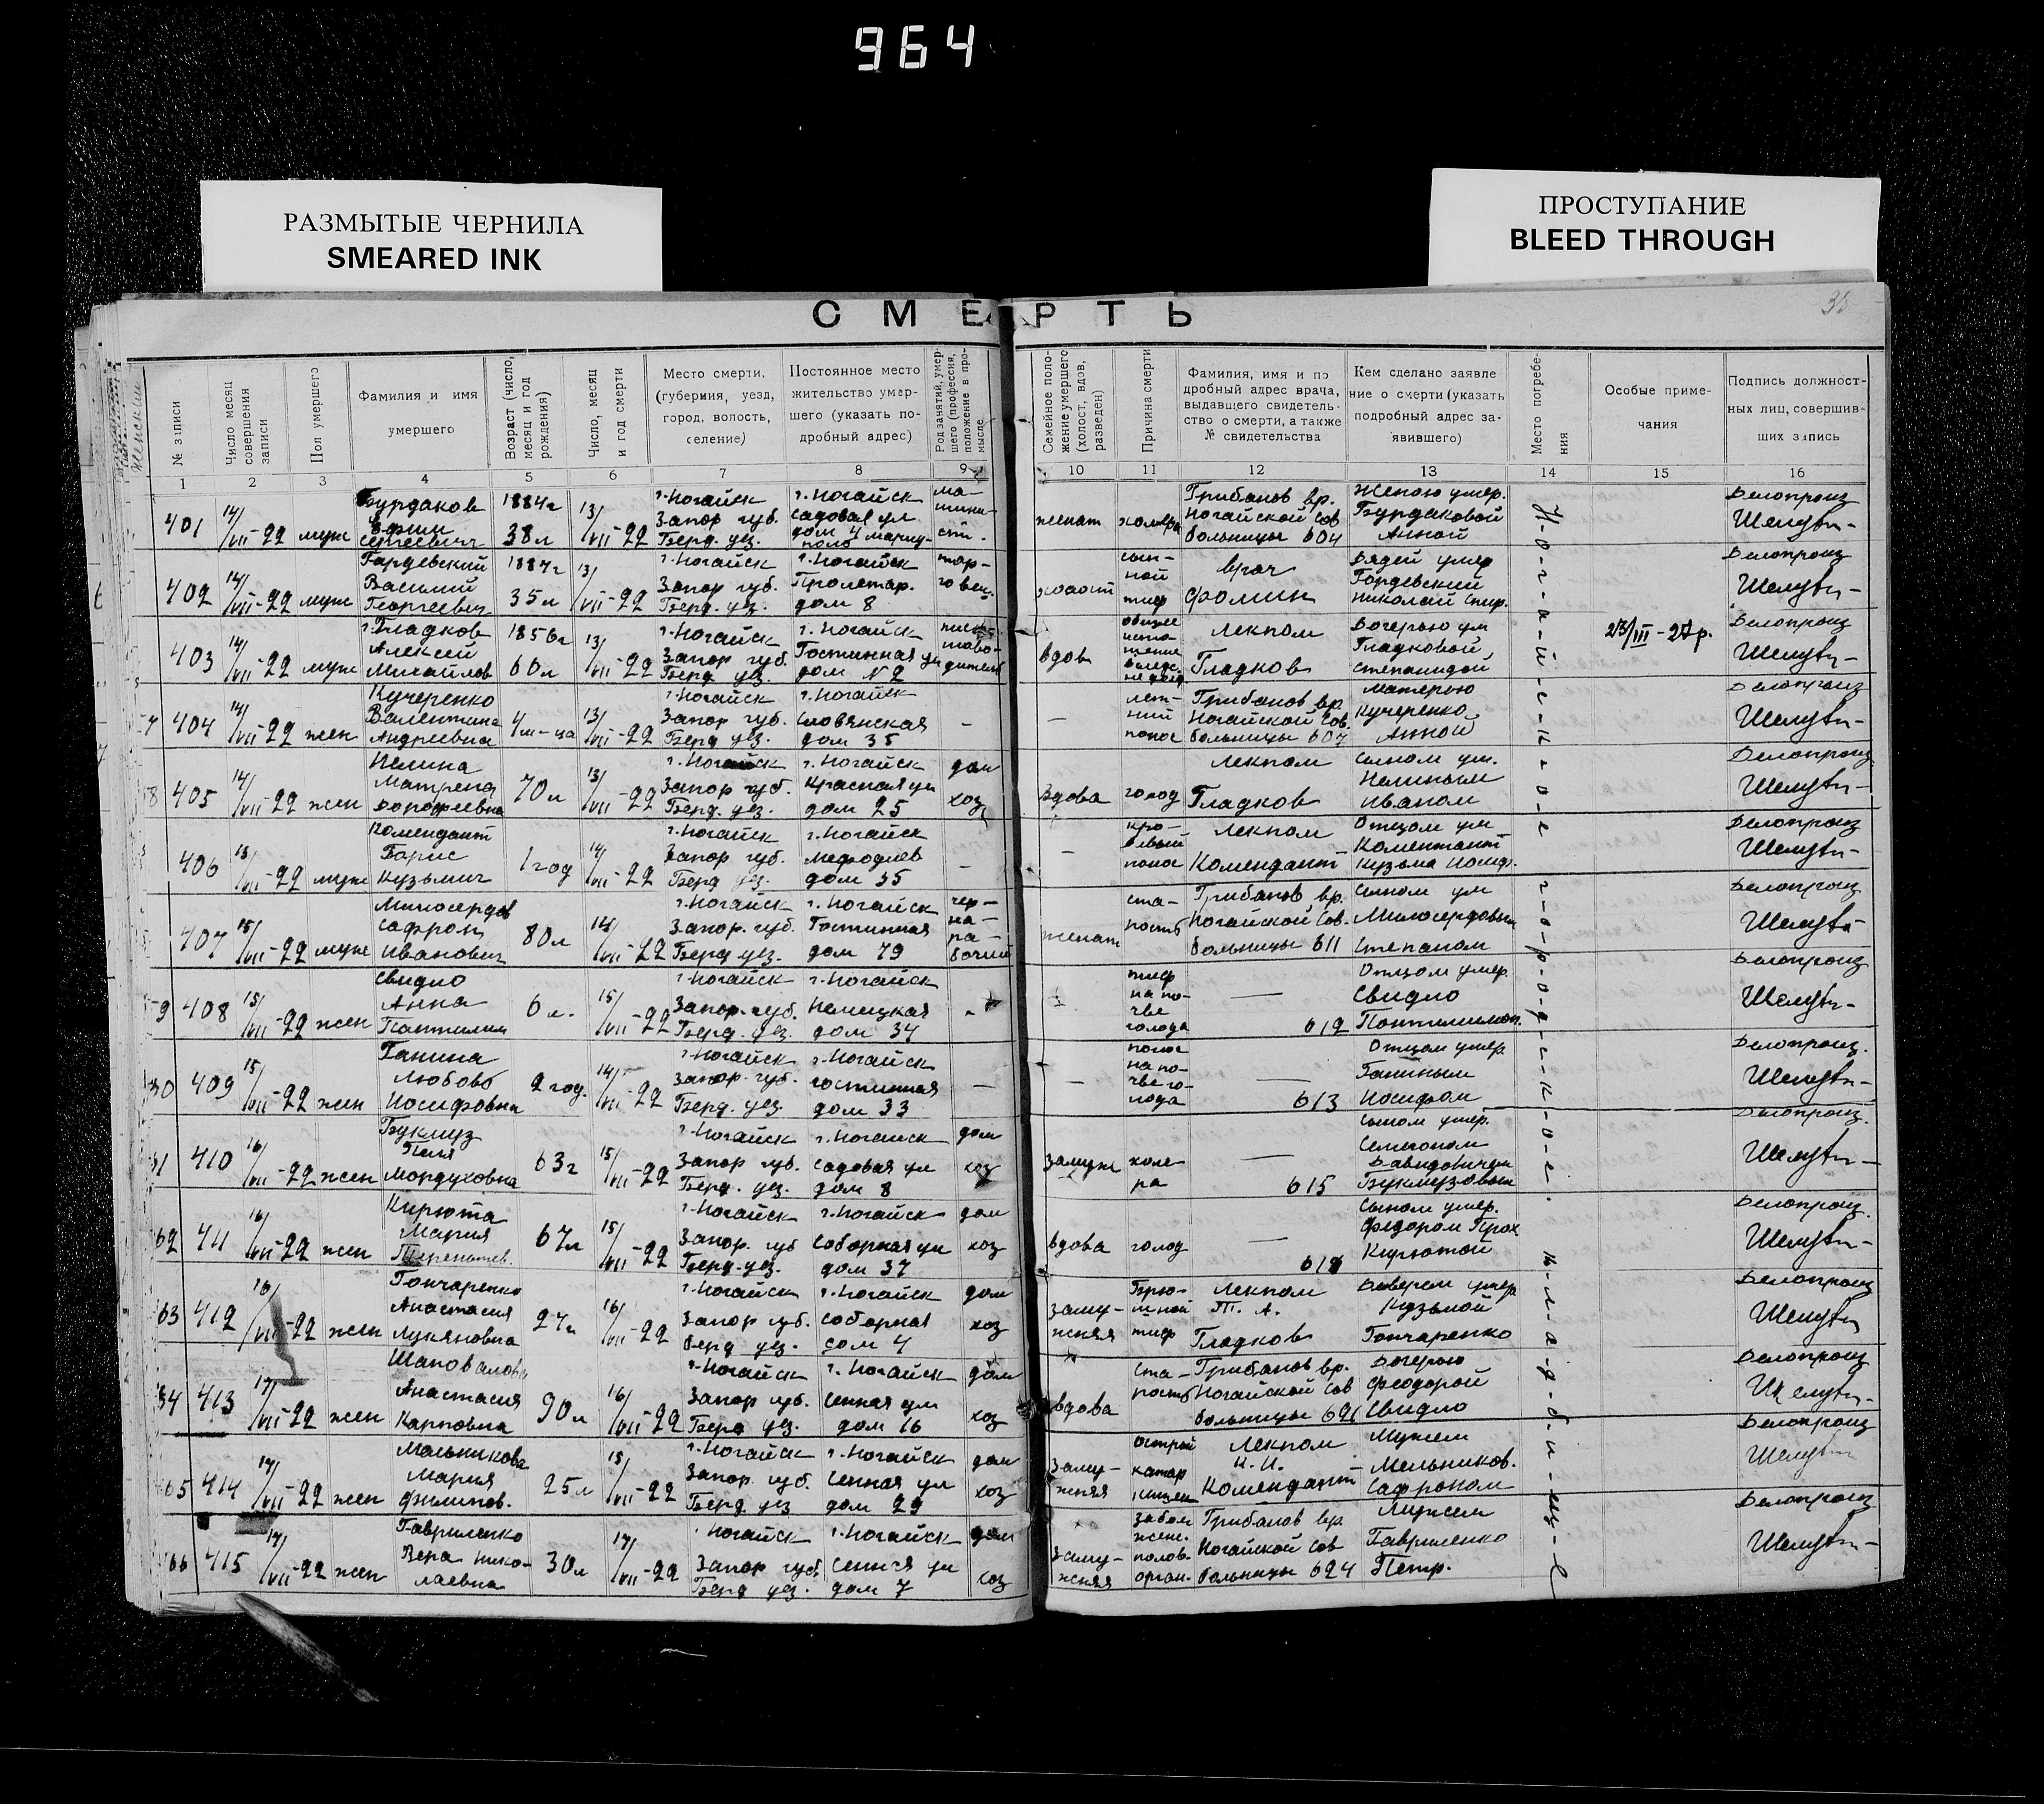 964
РАЗМЫТЫЕ ЧЕРНИЛА
SMEARED INK
ПРОСТУПАНИЕ
BLEED THROUGH
СМЕРТЬ
38
№ записи
Число месяц совершения записи
Пол умершего
Фамилия и имя умершего
Возраст (число, месяц и год рождения)
Число, месяц и год смерти
Место смерти, (губерния, уезд, город, волость, селение)
Постоянное место жительство умершего (указать подробный адрес)
Род занятий, умершего (профессия, положение в промысле
Семейное положение умершего (холост, вдов, разведен)
Причина смерти
Фамилия, имя и подробный адрес врача, выдавшего свидетельство о смерти, а также № свидетельства
Кем сделано заявление о смерти (указать подробный адрес заявившего)
Место погребения
Особые примечания
Подпись должностных лиц, совершивших запись
1 2 3 4 5 6 7 8 9 10 11 12 13 14 15 16
401 14/VII-22 муж Бурдаков Ефим Сергеевич 1884г 38л 13/VII-22 г. Ногайск Запор губ. Берд. уез. г. Ногайск Садовая ул дом 4 женат холера Грибанов вр. Ногайской Сов больницы 604 Женою умер. Бурдаковой Анной Делопроиз
402 14/VII-22 муж Гардевский Василий Георгиевич 1887г 35л 13/VII-22 г. Ногайск Запор губ. Берд. уез. г. Ногайск Пролетар. дом 8 торговец холост сыпной тиф Врач Фомин Дядей умер Гордевский Николай Спир. Делопроиз
403 14/VII-22 муж Гладков Алексей Михайлов 1856г 60л 13/VII-22 г. Ногайск Запор губ. Берд уез. г. Ногайск Гостинная ул дом №2 вдов Лекпом Гладков Дочерью ум Гладковой Степанидой 23/III-27р. Делопроиз
404 14/VII-22 жен Кучеренко Валентина Андреевна 4 м-ца 13/VII-22 г. Ногайск Запор губ. Берд уез. г. Ногайск Словянская дом 35 – – летний понос Грибанов вр Ногайской Сов. больницы 607 Матерью Кучеренко Анной Делопроиз
405 14/VII-22 жен Нелина Матрена Дорофеевна 70л 13/VII-22 г. Ногайск Запор губ. Берд. уез. г. Ногайск Красная ул дом 25 дом хоз вдова голод Лекпом Гладков Сыном ум. Нелиным Иваном Делопроиз
406 13/VII-22 муж Комендант Борис Кузьмич 1 год 14/VII-22 г. Ногайск Запор губ. Берд уез. г. Ногайск Мефодиев дом 35 – – кровавый понос Лекпом Комендант Отцом ум Комендант Кузьма Иосиф. Делопроиз
407 15/VII-22 муж Милосердов Сафрон Иванович 80л 14/VII-22 г. Ногайск Запор. губ. Берд уез. г. Ногайск Гостинная дом 79 чернорабочий женат старость Грибанов вр. Ногайской Сов. больницы 611 Сыном ум Милосердовым Степаном Делопроиз
408 15/VII-22 жен Свидло Анна Пантилим 6л. 15/VII-22 г. Ногайск Запор. губ. Берд. уез. г. Ногайск Немецкая дом 34 тиф на почве голода – 612 Отцом умер. Свидло Понтилимон. Делопроиз
409 15/VII-22 жен Ганина Любовь Иосифовна 2 год. 14/VII-22 г. Ногайск Запор. губ. Берд. уез. г. Ногайск гостинная дом 33 – – понос на почве голода – 613 Отцом умер Ганиным Иосифом Делопроиз.
410 16/VII-22 жен Буклуз Геня Мордуховна 63г 15/VII-22 г. Ногайск Запор губ. Берд. уез. г. Ногайск Садовая ул дом 8 дом хоз замуж холера – 615 Сыном умер. Давидовичем Буклузовым Делопроиз.
411 16/VII-22 жен Кирюта Мария Терентьев. 67л 15/VII-22 г. Ногайск Запор. губ Берд. уез. г. Ногайск Соборная ул дом 37 дом хоз вдова голод – Сыном умер. Федором Прох Кирютой Делопроиз.
412 16/VII-22 жен Гончаренко Анастасия Лукяновна 27л 16/VII-22 г. Ногайск Запор губ. берд уез. г. Ногайск Соборная дом 4 дом хоз замужняя Брюшной тиф Лекпом Т. А. Гладков Деверем умер Кузьмой Гончаренко Делопроиз
413 17/VII-22 жен Шаповалова Анастасия Карповна 90л 16/VII-22 г. Ногайск Запор губ. Берд уез. г. Ногайск Сенная ул дом 16 дом хоз вдова старость Грибанов вр. Ногайской Сов больницы 621 Дочерью Феодорой Свидло Делопроиз
414 17/VII-22 жен Мельникова Мария Филипов. 25л 15/VII-22 г. Ногайск Запор. губ Берд. уез г. Ногайск Сенная ул дом 29 дом хоз замужняя острый катар кишек Лекпом И. И. Комендант Мужем Мельников. Сафроном Делопроиз
415 17/VII-22 жен Гавриленко Вера Николаевна 30л 17/VII-22 г. Ногайск Запор губ. Берд уез. г. Ногайск Сенная ул дом 7 дом хоз замужняя забол женс. полов. орган. Грибанов вр Ногайской Сов больницы 624 Мужем Гавриленко Петр. Делопроиз
Н-о-г-а-й-с-к-о-е г-о-р-о-д-с-к-о-е. к-л-а-д-б-и-щ-е